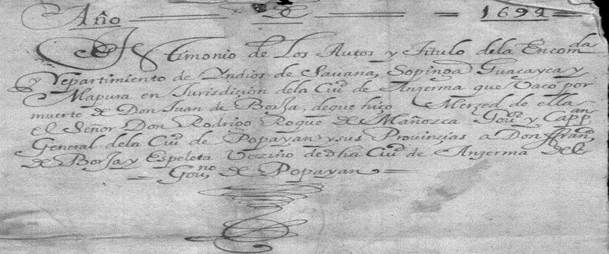 Año 1694
Testimonio de Los Autos y Titulo dela Encomda
y Repartimiento de Yndios de Navana, Sopinga Guacayca y
Mapura en Jurisdizión dela Ciud de Anzerma que Vacó por
muerte de Don Juan de Borja, deque hizo Merzed de ella
el Señor Don Rodrigo Roque de Mañozca Govor y Cappan
General dela Ciud de Popayan y sus Provinzias a Don Franco
de Borja y Espeleta Vezino de dha Ciud de Anzerma de el
Gouno de Popayan